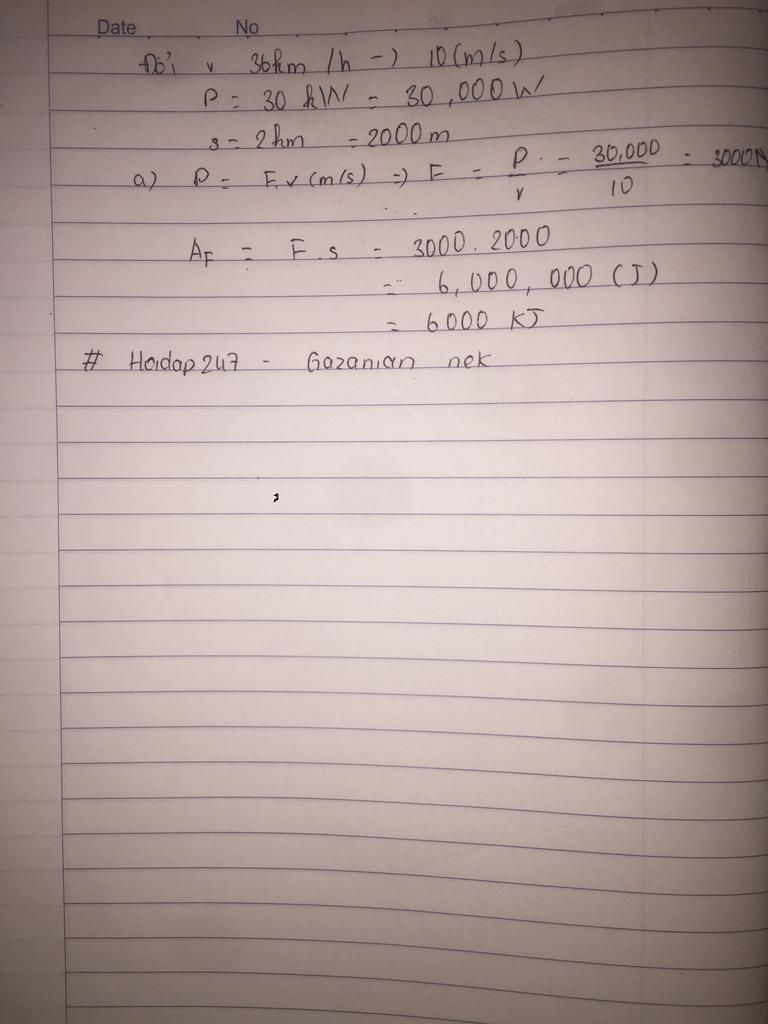 Date No
Đổi v 36km/h -) 10(m/s)
P = 30 kW = 30,000W
s = 2km = 2000m
a) P = F.v(m/s) =) F = P/v = 30,000/10 = 3000N
AF = F.s = 3000.2000
= 6,000,000 (J)
= 6000 KJ
# Hoidap247 - Gazanian nek